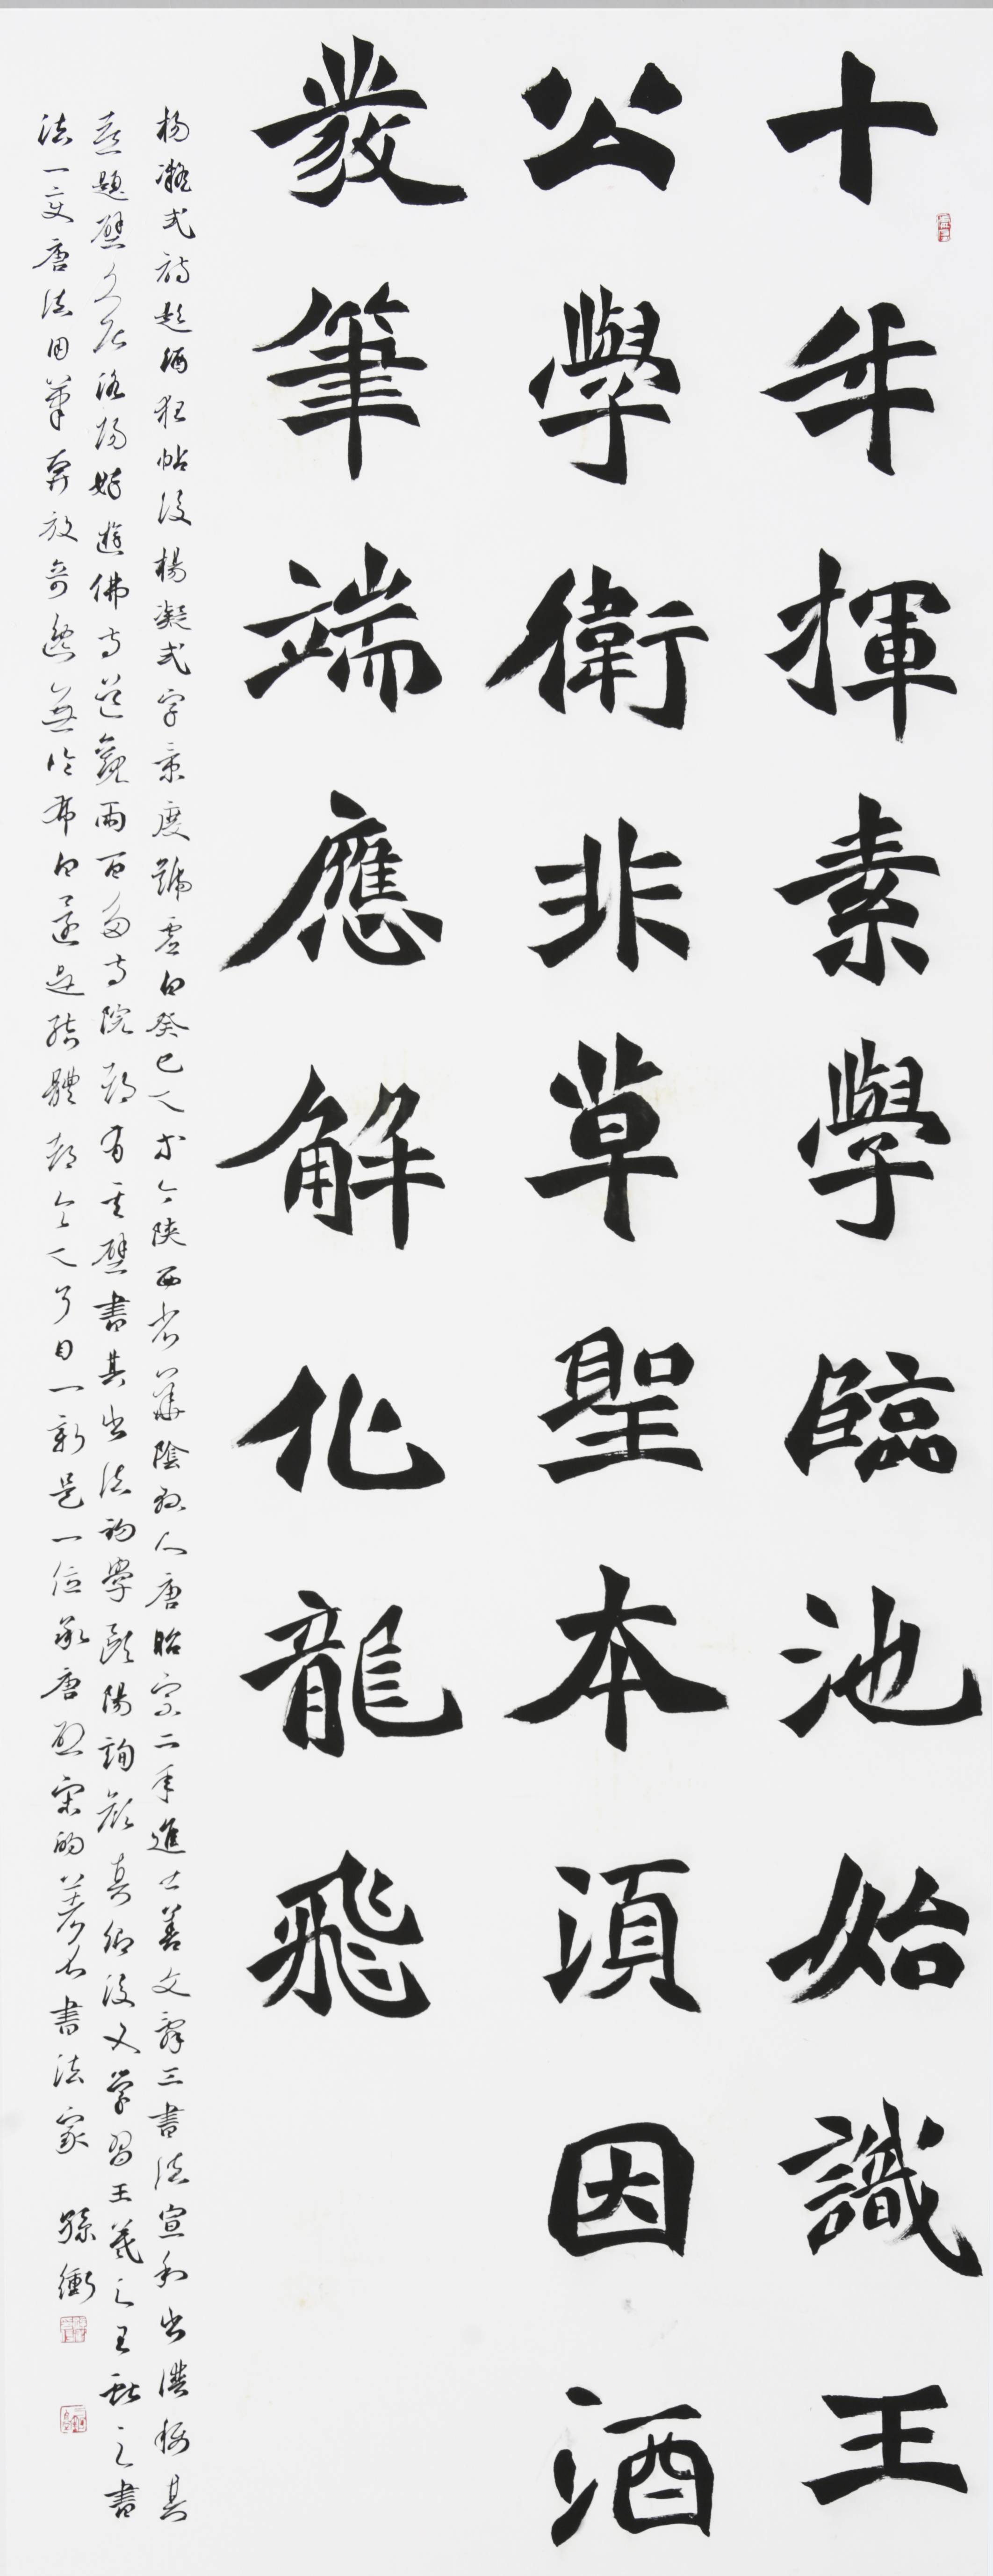 十年揮素學臨池始識王
公學衛非草聖本須因酒
發筆端應解化龍飛
楊凝式詩題酒狂帖後楊凝式字景度號虛白癸巳人陝西省華陰縣人唐昭宗二年進士善文辭三書法宣和書譜稱其
喜題壁久居洛陽好遊佛寺道觀兩百多寺院都有其壁書其書法初學歐陽詢顏真卿後又學習王羲之王獻之書
法一變唐法用筆奔放奇逸無論布白還是結體都令人耳目一新是一位承唐啟宋的著名書法家 孫衝